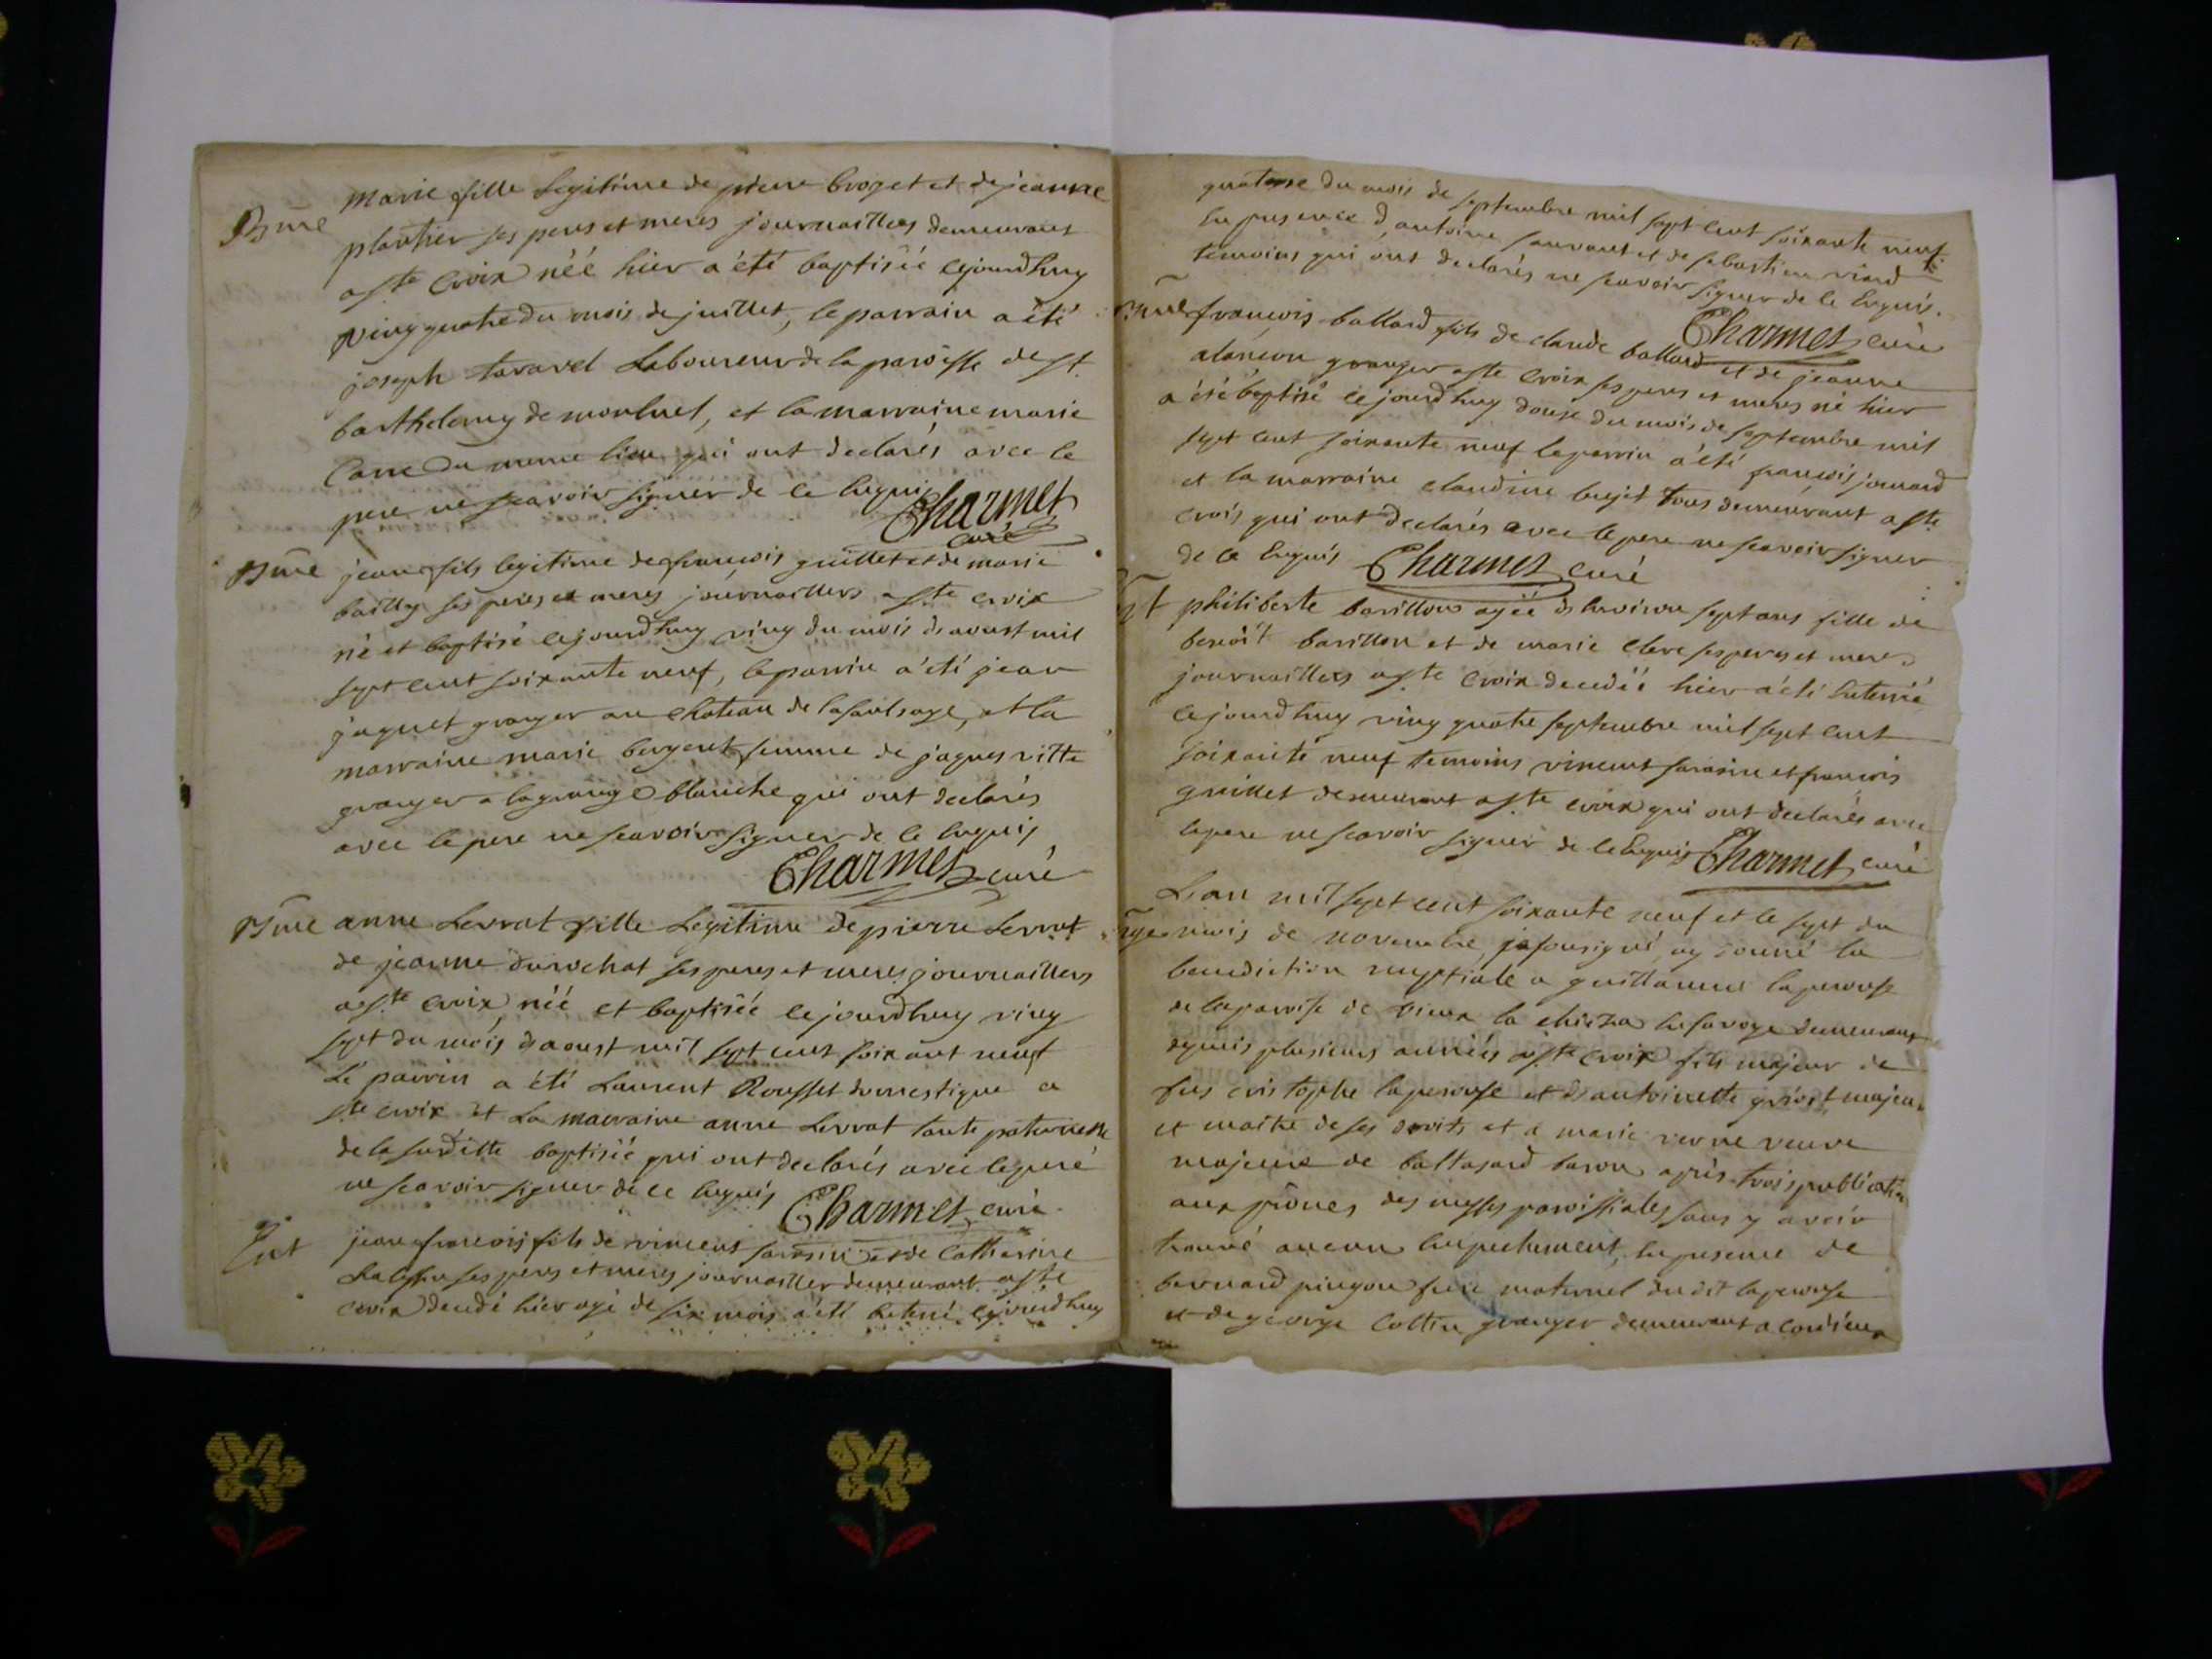 Bme marie fille Legitime de pierre broget et de jeanne
plantier ses peres et meres journaillers demeurant
a ste Croix néé hier a été baptiséé cejourdhuy
ving quatre du mois de juillet, le parrain a été
joseph taravel Laboureur de la paroisse de st
barthelemy de montluel, et la marraine marie
du meme lieu qui ont declarés avec le
pere ne scavoir signer de ce Enquis
Charmet
curé
Bme jean fils legitime de françois guillet et de marie
bailly ses peres et meres journaillers a ste croix
né et baptisé cejourdhuy ving du mois daoust mil
sept cent soixante neuf, le parrin a été jean
jaquet granger au chateau de la saulsaye, et la
marraine marie bergeret femme de jaques vitte
granger a la grange blanche qui ont declarés
avec le pere ne scavoir signer de ce Enquis
Charmet curé
Bme anne Levrat fille Legitime de pierre Levrat
de jeanne durochat ses peres et meres journaillers
a ste croix néé et baptiséé cejourdhuy ving
sept du mois daoust mil sept cent soixant neuf
Le parrin a été Laurent Rousset domestique a
ste croix et La marraine anne Levrat tante paternelle
de la susditte baptiséé qui ont declarés avec le peré
ne scavoir signer de ce Enquis Charmet curé
Ent jean francois fils de vincent sarasin et de Catherine
ses peres et meres journaillier demeurant a ste
croix decedé hier agé de six mois a été Enterré cejourdhuy
quatorse du mois de septembre mil sept cent soixante neuf
En presence d antoine sauvant et de sebastien viard
temoins qui ont declarés ne scavoir signer de ce Enquis.
Charmet curé
Bme françois ballard fils de claude ballard et de jeanne
alancon granger a ste croix ses peres et meres né hier
a été baptisé cejourdhuy douse du mois de septembre mil
sept cent soixante neuf le parrin a été françois jomard
et la marraine claudine brojet tous demeurant a ste
crois qui ont declarés avec le pere ne scavoir signer
de ce Enquis Charmet curé
philiberte barillon agéé denviron sept ans fille de
benoit barillon et de marie clere ses peres et meres
journaillers a ste Croix decedéé hier a été Enterréé
cejourdhuy ving quatre septembre mil sept cent
soixante neuf temoins vincent sarasin et francois
guillet demeurant a ste croix qui ont declarés avec
le pere ne scavoir signer de ce Enquis Charmet curé
L an mil sept cent soixante neuf et le sept du
mois de novembre je sousigné ay donné la
benediction nuptiale a guillaume laperouse
de la paroise de vieux la En savoye demeurant
depuis plusieurs années a ste croix fils majeur de
fus cristophe laperouse et dantoinette majeur
et maitre de ses droits et a marie verne veuve
majeure de baltasard baron après trois publication
aux prônes des messes paroissiales sans y avoir
trouvé aucun Enpechement, En presence de
bernard pingon frere maternel du dit laperouse
et de george Cottin granger demeurant a cordieux